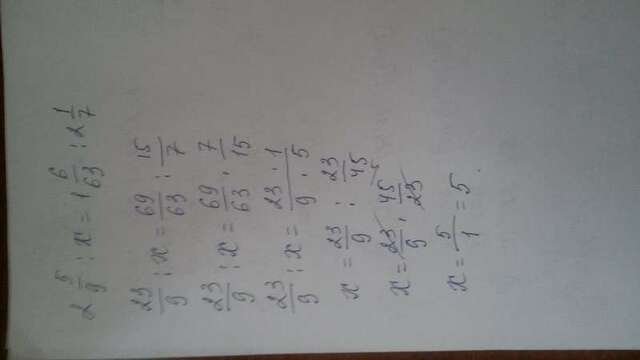 2 5/9 : x = 1 6/63 : 2 1/7
23/9 : x = 69/63 : 15/7
23/9 : x = 69/63 · 7/15
23/9 : x = 23 · 1/9 · 5
x = 23/9 : 23/45
x = 23/9 · 45/23
x = 5/1 = 5.